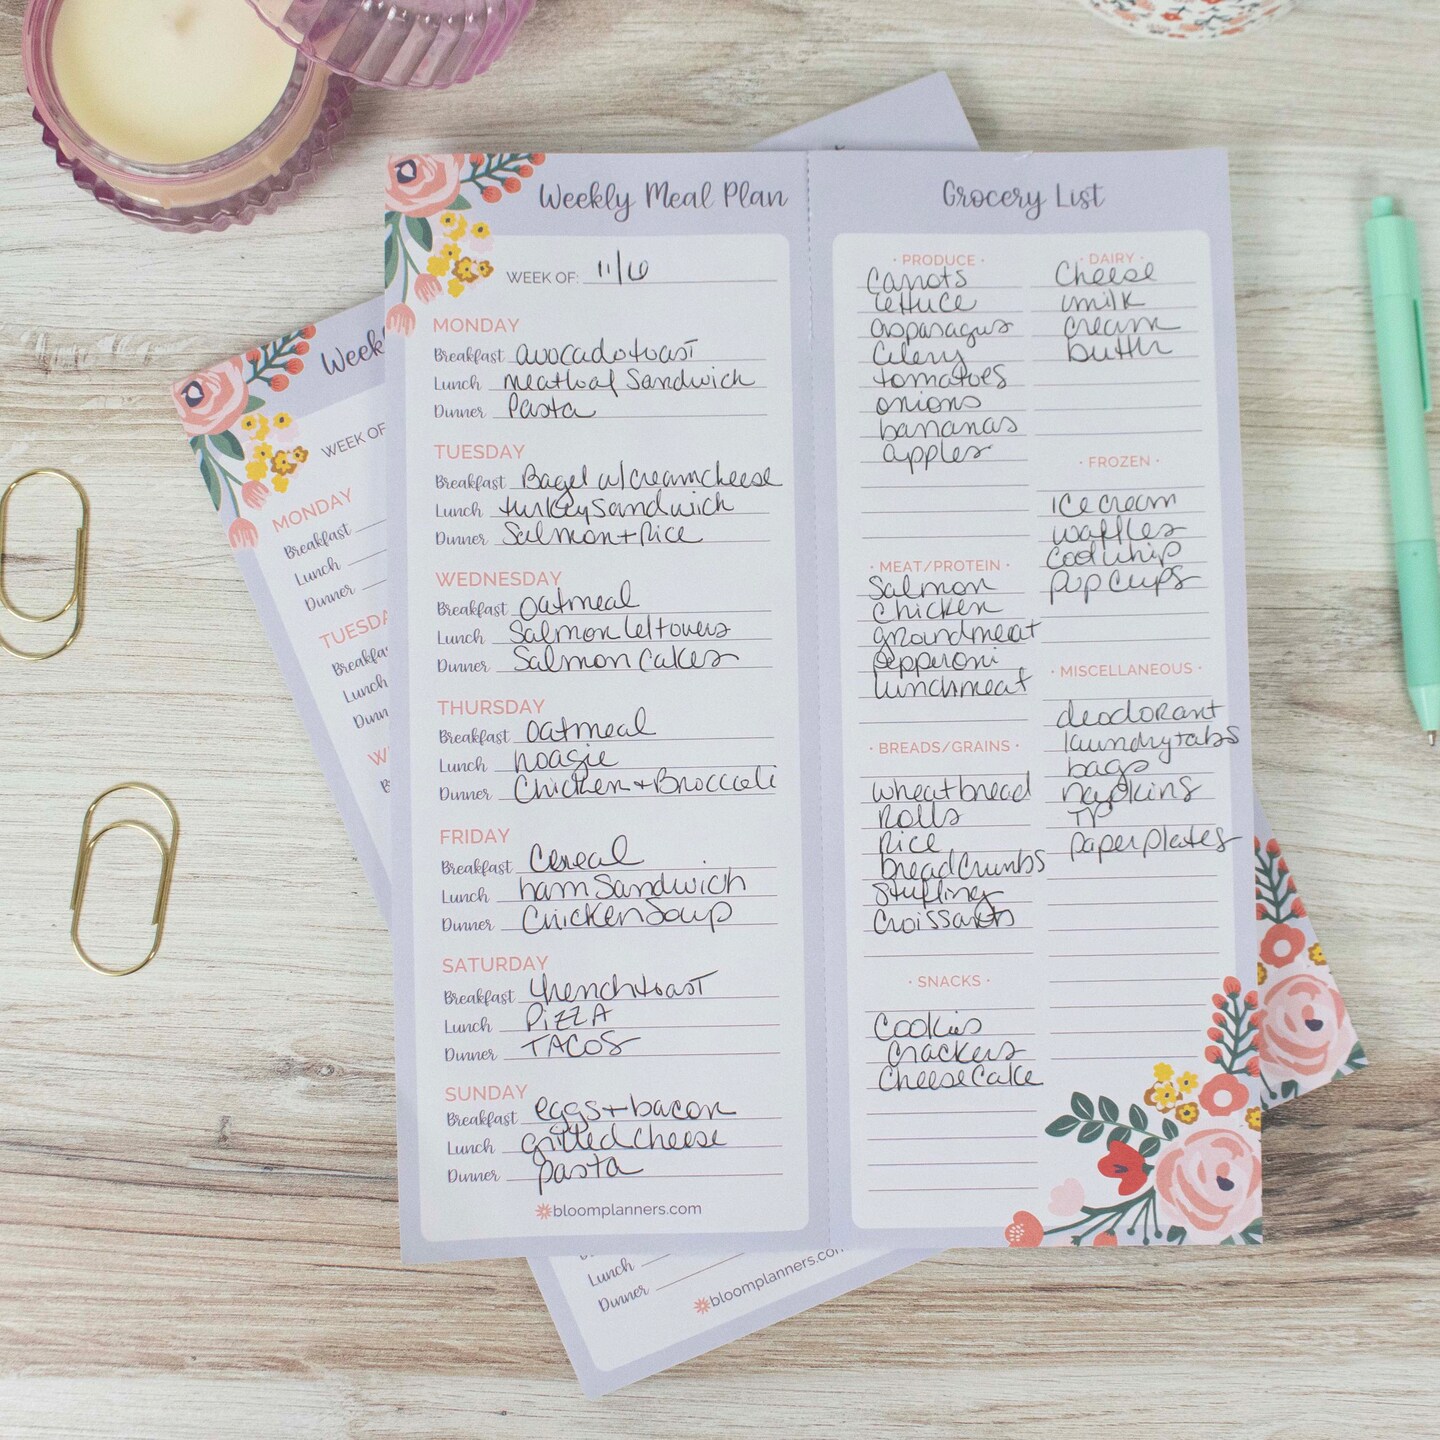 Weekly Meal Plan
WEEK OF: 11/6
MONDAY
Breakfast avocado toast
Lunch meatloaf Sandwich
Dinner Pasta
TUESDAY
Breakfast Bagel w/ creamcheese
Lunch turkey Sandwich
Dinner Salmon + Rice
WEDNESDAY
Breakfast oatmeal
Lunch Salmon leftovers
Dinner Salmon Cakes
THURSDAY
Breakfast oatmeal
Lunch hoagie
Dinner Chicken + Broccoli
FRIDAY
Breakfast Cereal
Lunch ham Sandwich
Dinner Chicken Soup
SATURDAY
Breakfast french toast
Lunch PIZZA
Dinner TACOS
SUNDAY
Breakfast eggs + bacon
Lunch grilled cheese
Dinner pasta
bloomplanners.com
Grocery List
· PRODUCE ·
Carrots
lettuce
asparagus
Celery
tomatoes
onions
bananas
apples
· MEAT/PROTEIN ·
Salmon
Chicken
ground meat
pepperoni
lunchmeat
· BREADS/GRAINS ·
wheat bread
Rolls
Rice
bread Crumbs
Stuffing
Croissants
· SNACKS ·
Cookies
Crackers
Cheese Cake
· DAIRY ·
Cheese
milk
cream
butter
· FROZEN ·
Ice cream
waffles
Cool whip
Pop Cups
· MISCELLANEOUS ·
deodorant
laundry tabs
bags
napkins
TP
paper plates
Week
WEEK OF
MONDAY
Breakfast
Lunch
Dinner
TUESDA
Breakfa
Lunch
Dinn
W
B
Lunch
Dinner
bloomplanners.com